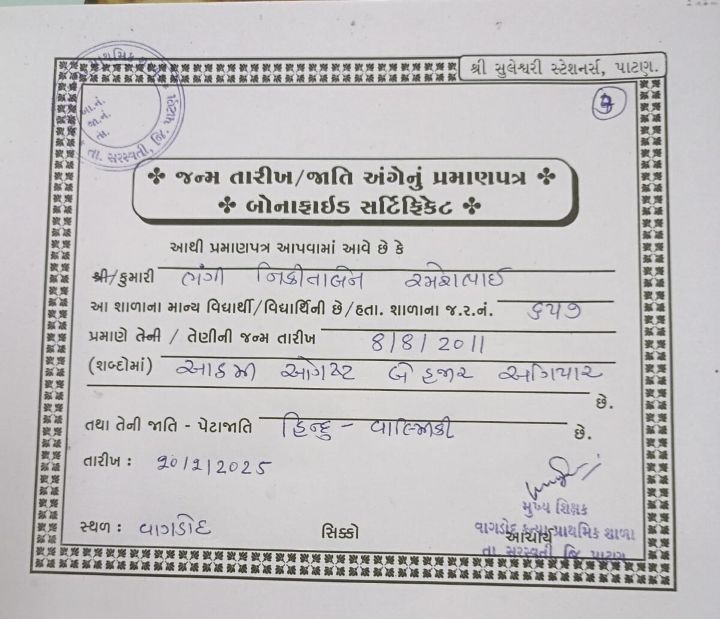 શ્રી સુલેશ્વરી સ્ટેશનર્સ, પાટણ.
પ્રાથમિક
આ.નં.
જા.નં.
તા.
તા. સરસ્વતી, જિ. પાટણ
❖ જન્મ તારીખ/જાતિ અંગેનું પ્રમાણપત્ર ❖
❖ બોનાફાઈડ સર્ટિફિકેટ ❖
આથી પ્રમાણપત્ર આપવામાં આવે છે કે
શ્રી/કુમારી ભંગી નિકીતાબેન રમેશભાઈ
આ શાળાના માન્ય વિદ્યાર્થી/વિદ્યાર્થિની છે/હતા. શાળાના જ.ર.નં. ૬૫૭
પ્રમાણે તેની / તેણીની જન્મ તારીખ 8/8/2011
(શબ્દોમાં) આઠમી ઓગસ્ટ બે હજાર અગિયાર
છે.
તથા તેની જાતિ - પેટાજાતિ હિન્દુ - વાલ્મિકી છે.
તારીખ : 20/2/2025
મુખ્ય શિક્ષક
સ્થળ : વાગડોદ સિક્કો આચાર્ય
વાગડોદ કન્યા પ્રાથમિક શાળા
તા સરસ્વતી જિ પાટણ